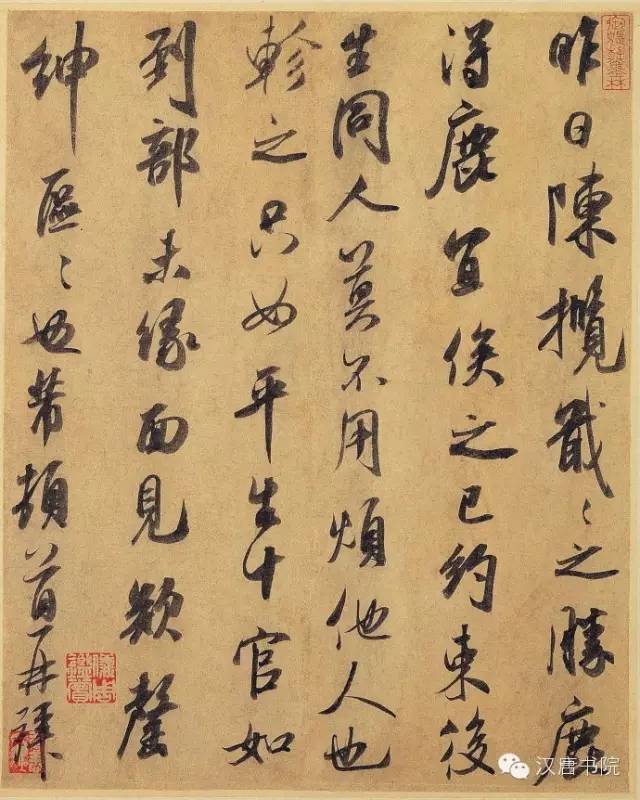 昨日陳攬戢〻之勝鹿
得鹿宜俟之已約束後
生同人莫不用煩他人也
軫之只如平生十官如
到部未緣面見欵罄
紳區〻也芾頓首再拜
汉唐书院